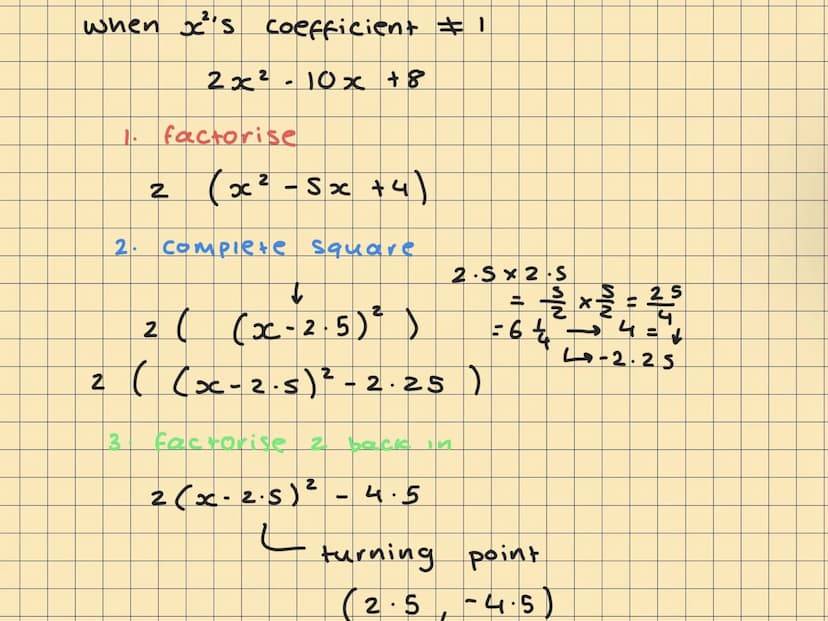 when x²'s coefficient ≠ 1
2x² - 10x + 8
1. factorise
2 (x² - 5x + 4)
2. complete square
↓
2 ( (x - 2.5)² )
2 ( (x - 2.5)² - 2.25 )
2.5 x 2.5
= 5/2 x 5/2 = 25/4
= 6 1/4 → 4 = ↓
↳ -2.25
3. factorise 2 back in
2(x - 2.5)² - 4.5
turning point
(2.5, -4.5)